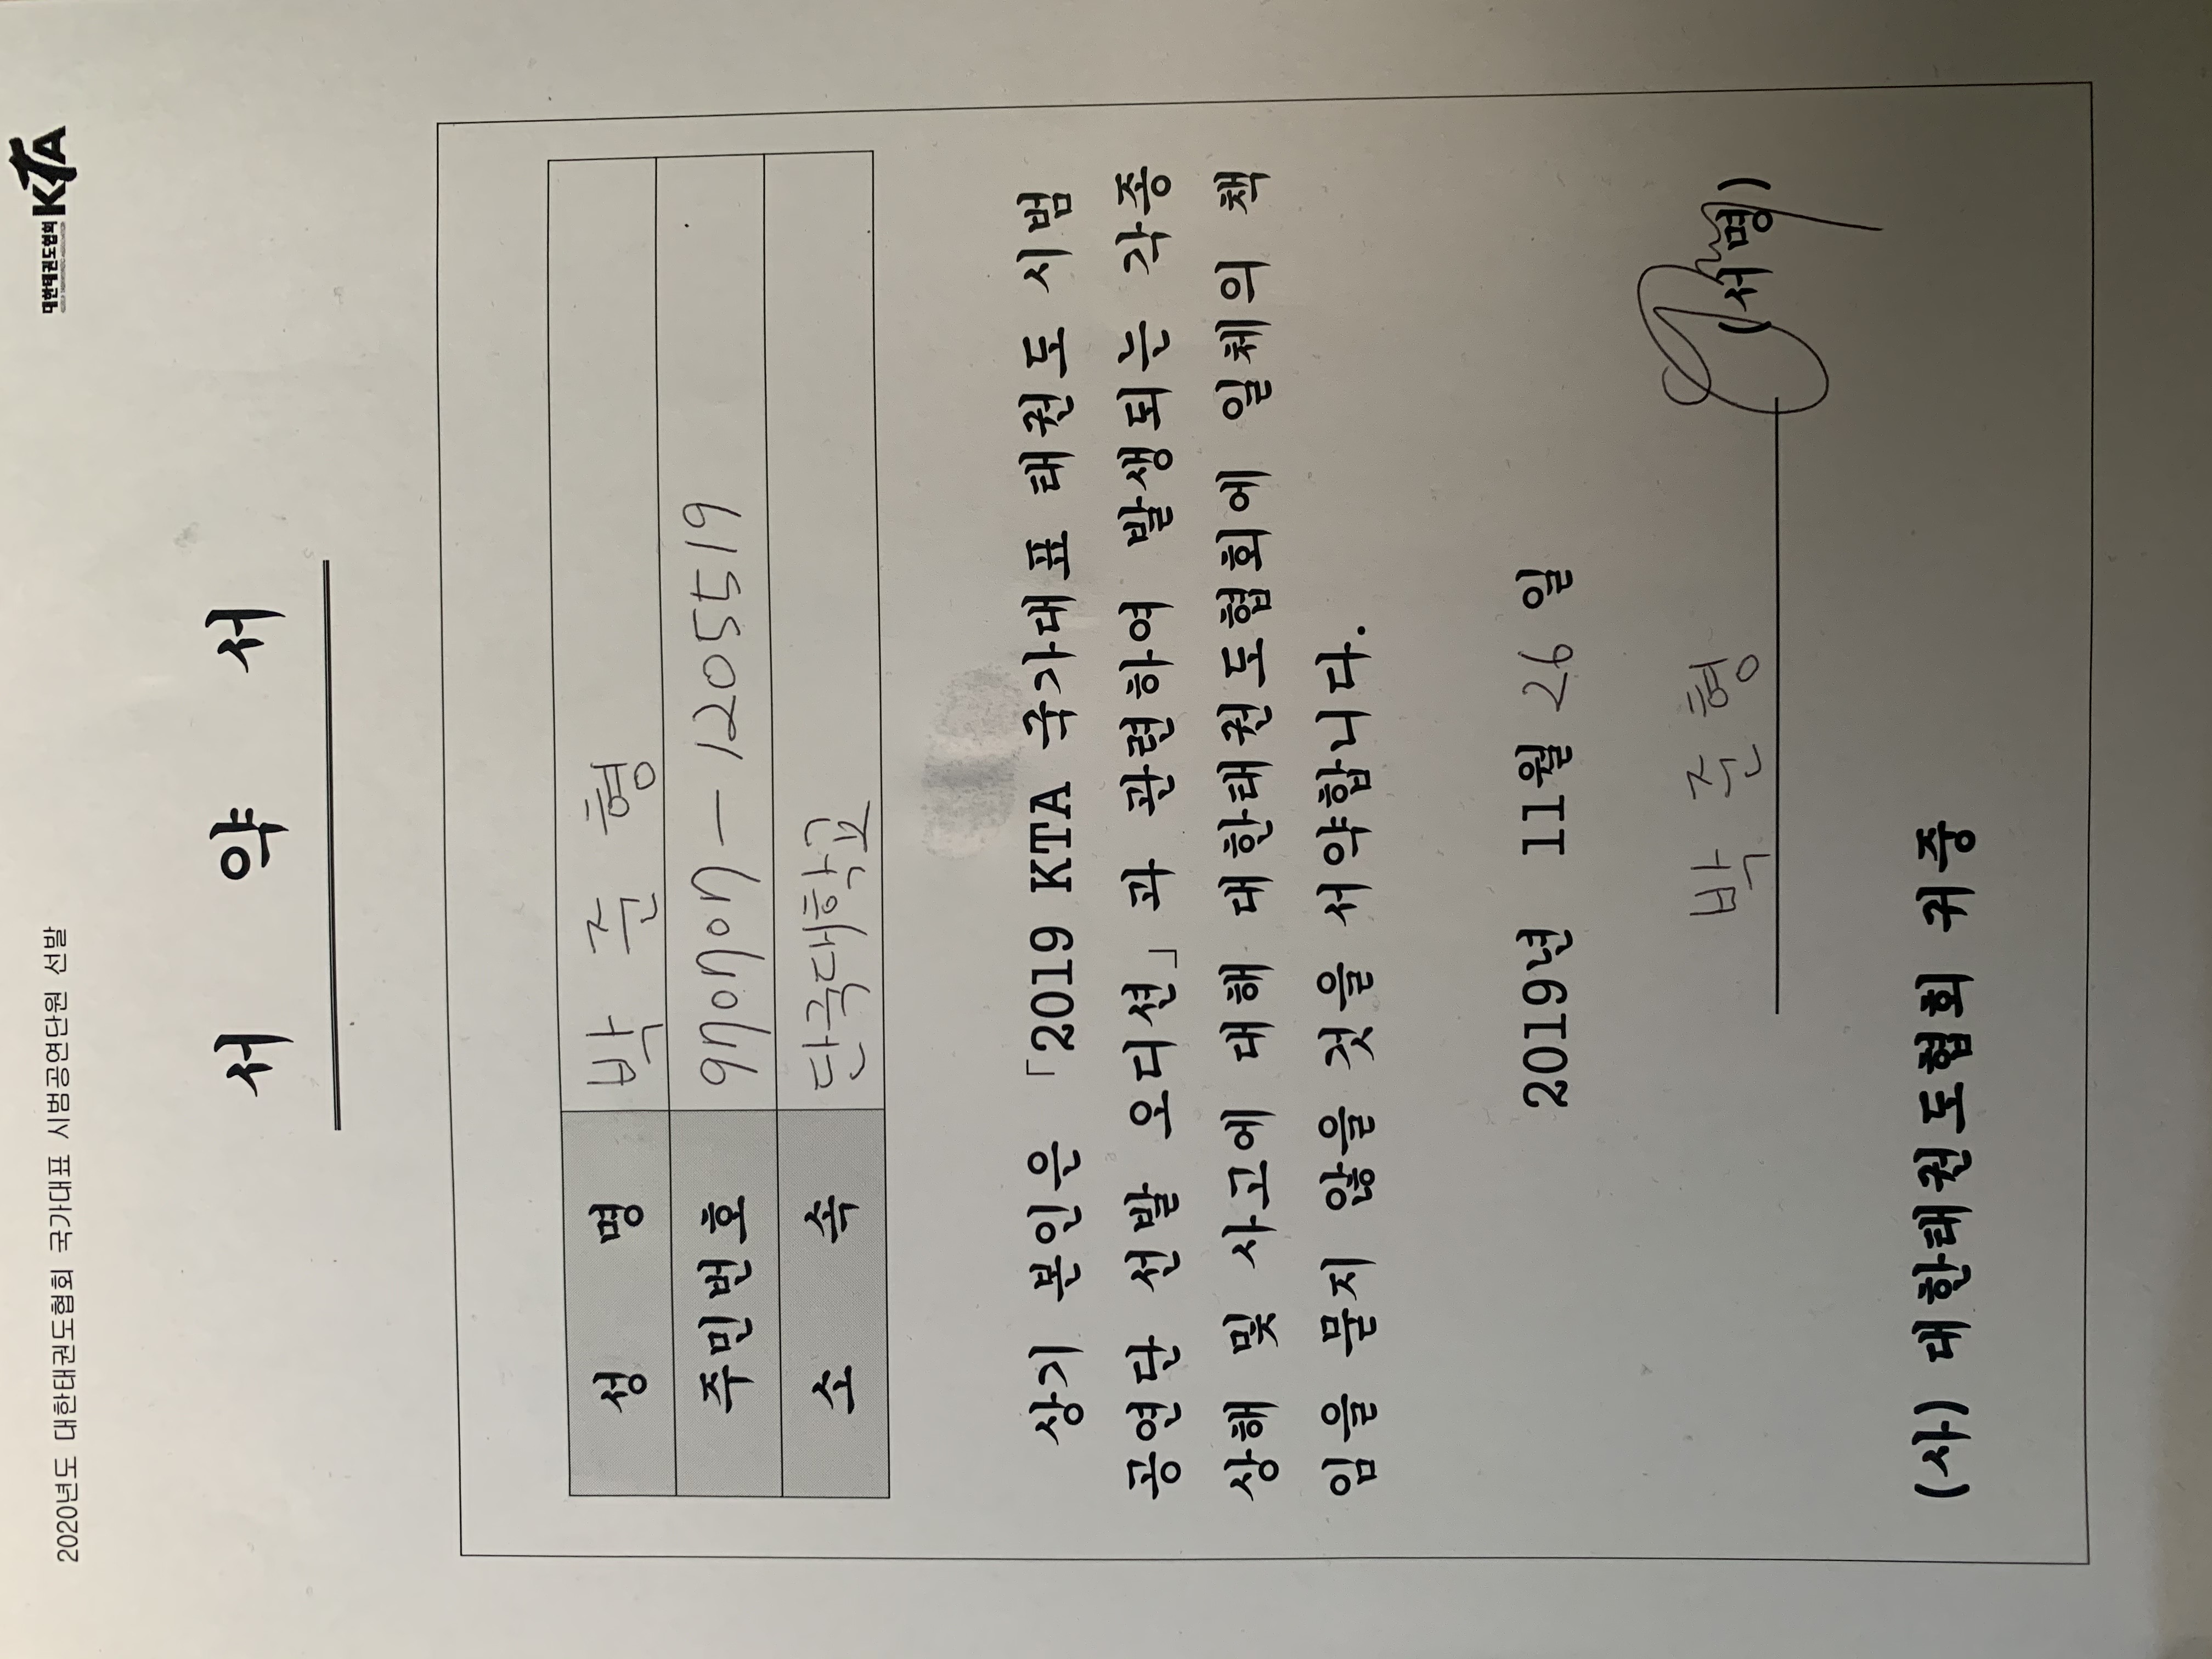 2020년도 대한태권도협회 국가대표 시범공연단원 선발
대한태권도협회 KTA
서 약 서
성 명 박 준 형
주민번호 970707-1205519
소 속 단국대학교
상기 본인은 「2019 KTA 국가대표 태권도 시범
공연단 선발 오디션」과 관련하여 발생되는 각종
상해 및 사고에 대해 대한태권도협회에 일체의 책
임을 묻지 않을 것을 서약합니다.
2019년 11월 26 일
박 준 형 (서명)
(사) 대한태권도협회 귀중